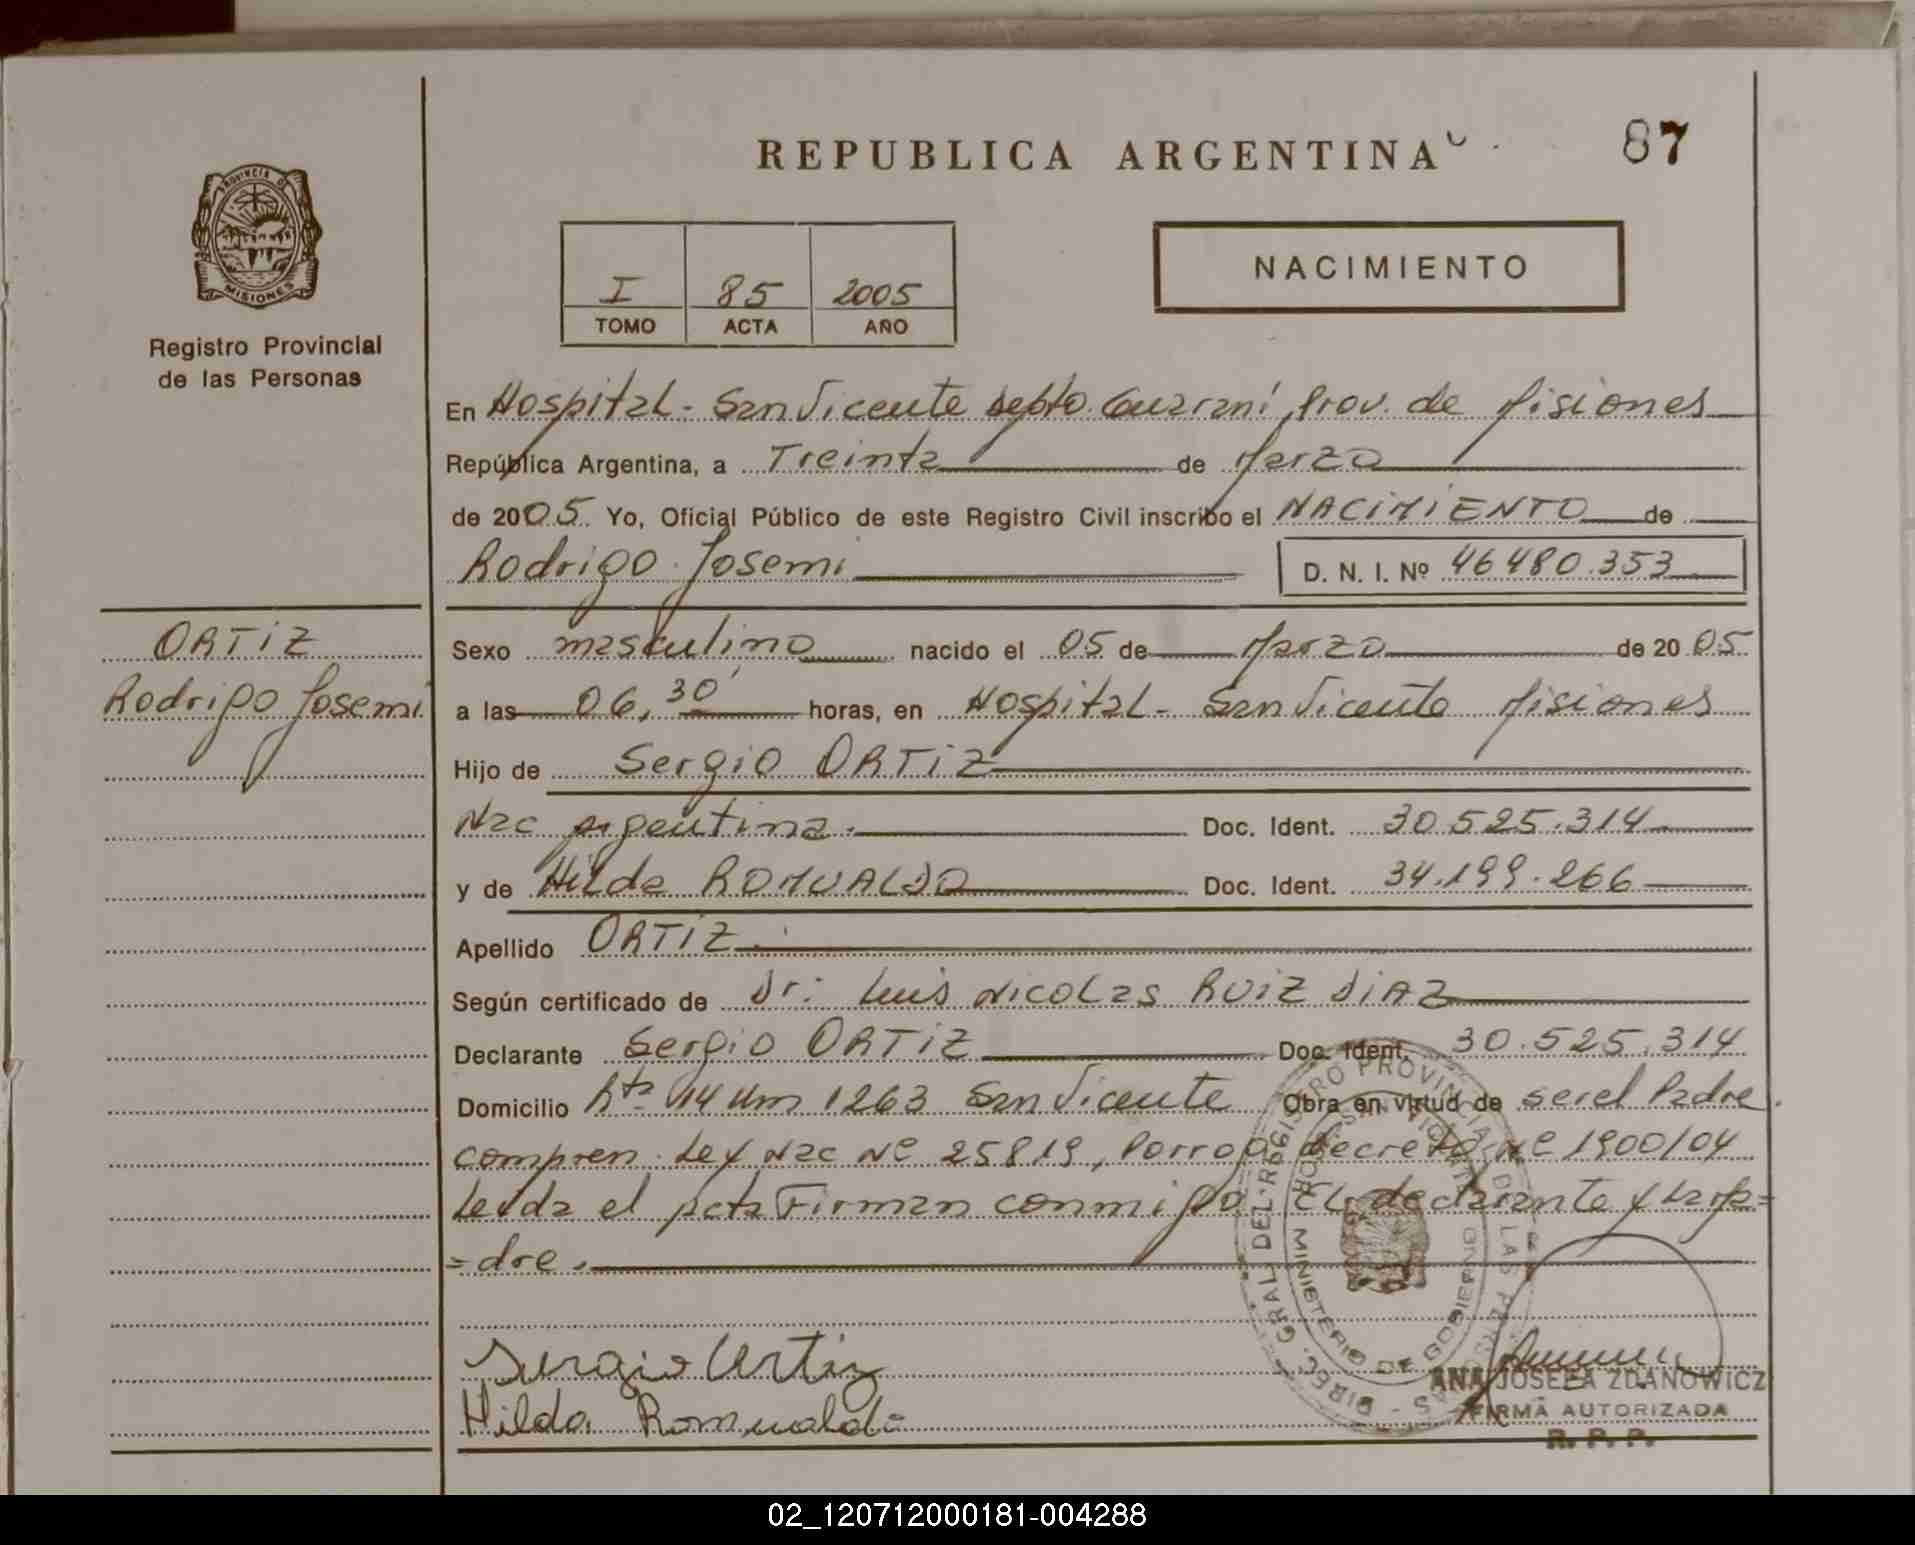 REPUBLICA ARGENTINA
87
PROVINCIA DE
MISIONES
Registro Provincial
de las Personas
I 85 2005
TOMO ACTA AÑO
NACIMIENTO
En Hospital - San Vicente Depto. Guaraní, Prov. de Misiones
República Argentina, a Treinta de Marzo
de 2005. Yo, Oficial Público de este Registro Civil inscribo el NACIMIENTO de
Rodrigo Josemi
D. N. I. Nº 46480.353
ORTIZ
Rodrigo Josemi
Sexo masculino nacido el 05 de Marzo de 2005
a las 06,30' horas, en Hospital - San Vicente Misiones
Hijo de Sergio ORTIZ
Nac Argentina. Doc. Ident. 30.525.314
y de Hilda ROMUALDO Doc. Ident. 34.199.266
Apellido ORTIZ
Según certificado de Dr: Luis Nicolas RUIZ DIAZ
Declarante Sergio ORTIZ Doc. Ident. 30.525.314
Domicilio Rta 14 Km 1263 San Vicente Obra en virtud de ser el Padre.
compren. Ley Nac Nº 25819, Prorroga Decreto Nº 1900/04
Leída el acta Firman conmigo El declarante y La Ma=
=dre.
DIREC. GRAL. DEL REGISTRO PROVINCIAL DE LAS PERSONAS
MINISTERIO DE GOBIERNO
Sergio Ortiz
Hilda Romualdo
ANA JOSEFA ZDANOWICZ
FIRMA AUTORIZADA
R. P. P.
02_120712000181-004288